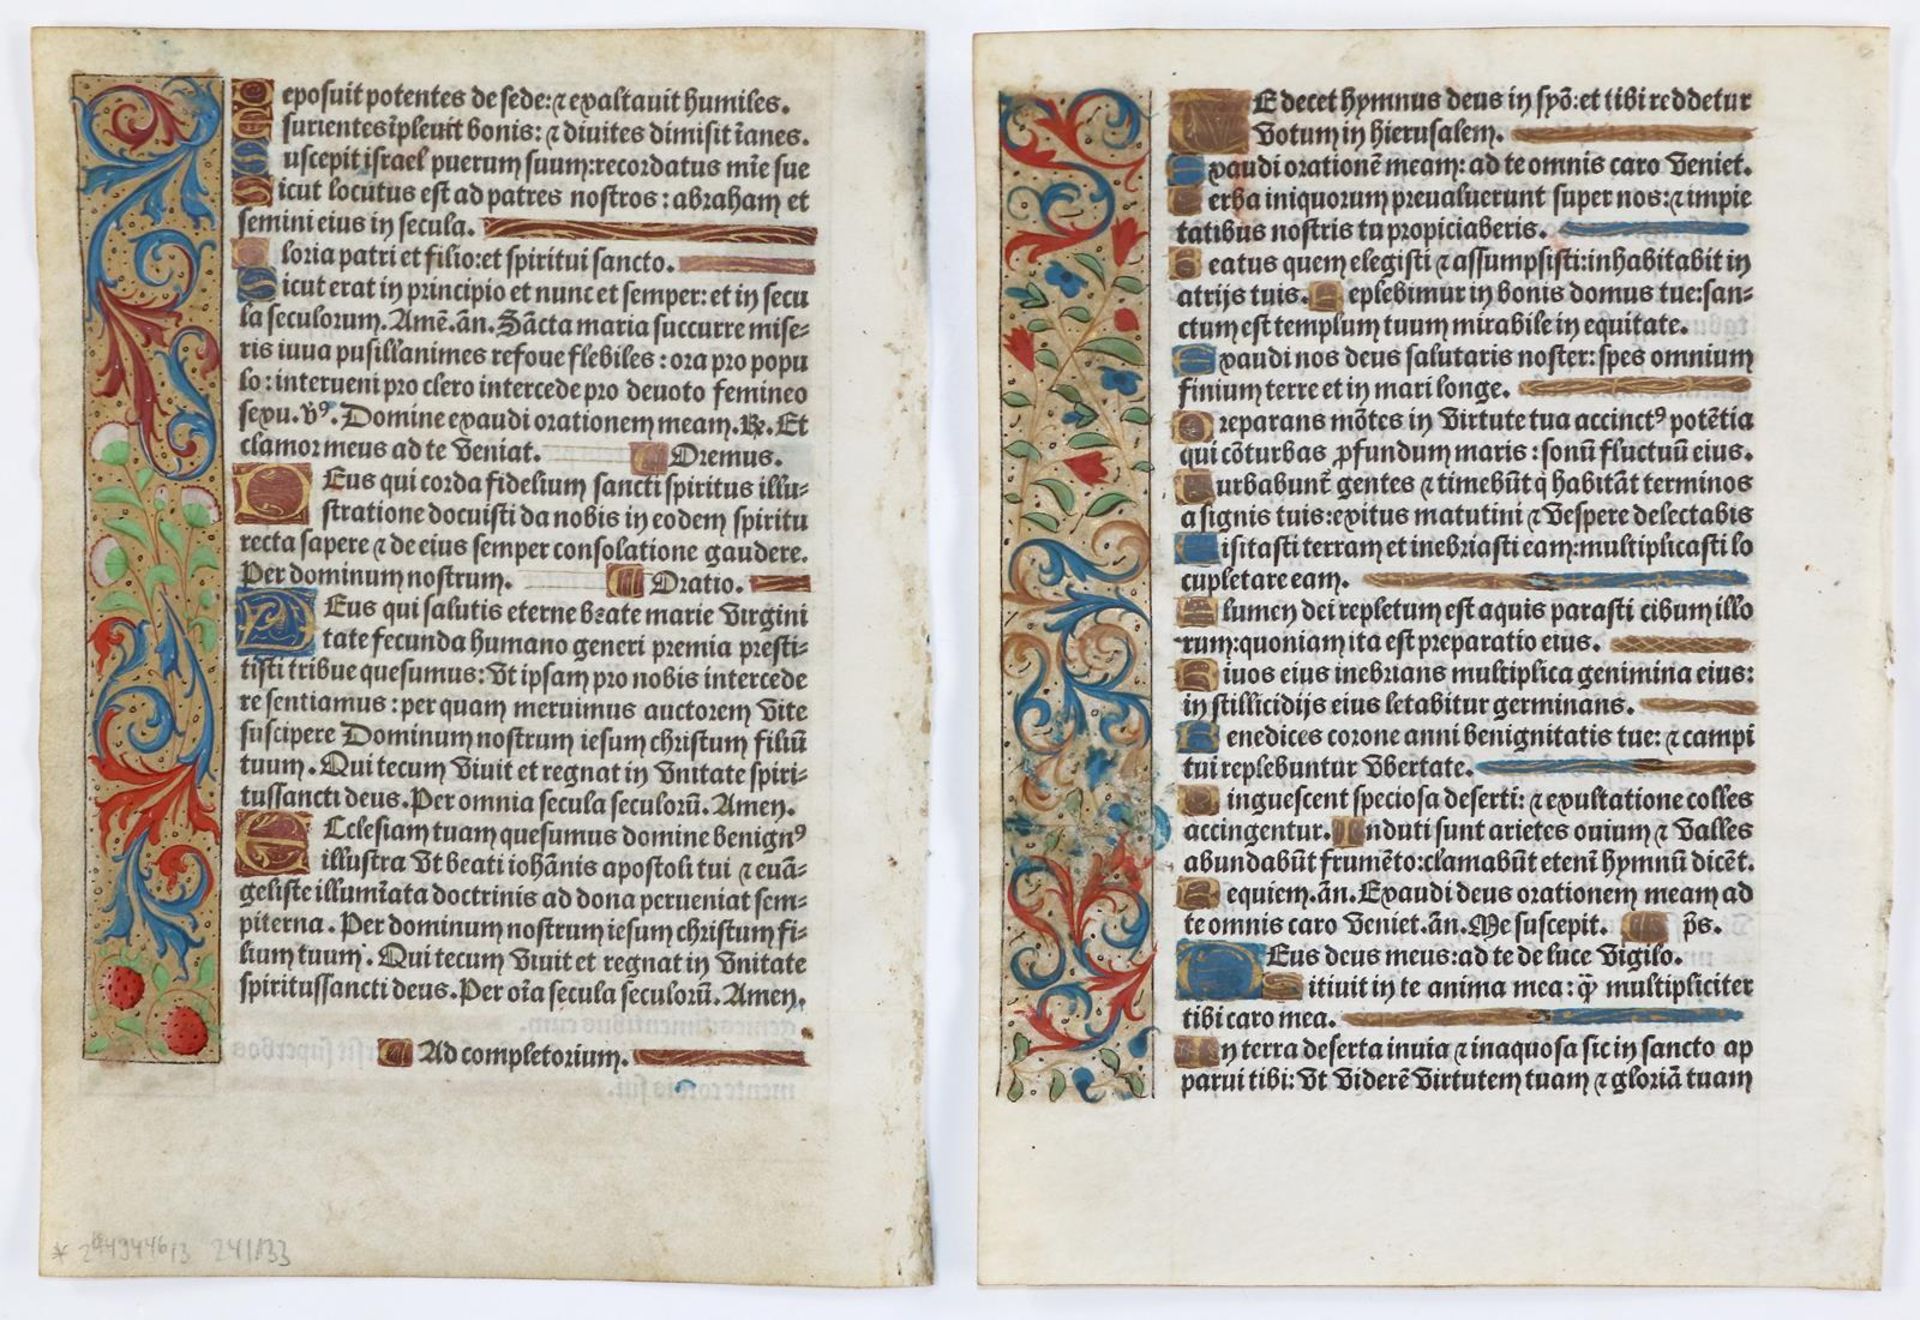 Deposuit potentes de sede: ⁊ exaltauit humiles.
Esurientes īpleuit bonis: ⁊ diuites dimisit īanes.
Suscepit israel puerum suum: recordatus mīe sue
Sicut locutus est ad patres nostros: abraham et
semini eius in secula.
Gloria patri et filio: et spiritui sancto.
Sicut erat in principio et nunc et semper: et in secu
la seculorum. Amē. ān. Sācta maria succurre mise-
ris iuua pusillanimes refoue flebiles: ora pro popu
lo: interueni pro clero intercede pro deuoto femineo
sexu. v̄ꝰ. Domine exaudi orationem meam. ℞. Et
clamor meus ad te veniat. Oremus.
DEus qui corda fidelium sancti spiritus illu-
stratione docuisti da nobis in eodem spiritu
recta sapere ⁊ de eius semper consolatione gaudere.
Per dominum nostrum. Oratio.
DEus qui salutis eterne beate marie virgini
tate fecunda humano generi premia presti-
tisti tribue quesumus: vt ipsam pro nobis intercede
re sentiamus: per quam meruimus auctorem vite
suscipere Dominum nostrum iesum christum filiū
tuum. Qui tecum viuit et regnat in vnitate spiri-
tussancti deus. Per omnia secula seculorū. Amen.
ECclesiam tuam quesumus domine benignꝰ
illustra vt beati iohānis apostoli tui ⁊ euā-
geliste illumīata doctrinis ad dona perueniat sem-
piterna. Per dominum nostrum iesum christum fi-
lium tuum. Qui tecum viuit et regnat in vnitate
spiritussancti deus. Per oīa secula seculorū. Amen.
Ad completorium.
241133
TE decet hymnus deus in syō: et tibi reddetur
votum in hierusalem.
Exaudi orationē meam: ad te omnis caro veniet.
Verba iniquorum preualuerunt super nos: ⁊ impie
tatibus nostris tu propiciaberis.
Beatus quem elegisti ⁊ assumpsisti: inhabitabit in
atrijs tuis. Replebimur in bonis domus tue: san-
ctum est templum tuum mirabile in equitate.
Exaudi nos deus salutaris noster: spes omnium
finium terre et in mari longe.
Preparans mōtes in virtute tua accinctꝰ potētia
qui cōturbas ꝓfundum maris: sonū fluctuū eius.
Turbabunt᷑ gentes ⁊ timebūt q̄ habitāt terminos
a signis tuis: exitus matutini ⁊ vespere delectabis
Uisitasti terram et inebriasti eam: multiplicasti lo
cupletare eam.
Flumen dei repletum est aquis parasti cibum illo
rum: quoniam ita est preparatio eius.
Riuos eius inebrians multiplica genimina eius:
in stillicidijs eius letabitur germinans.
Benedices corone anni benignitatis tue: ⁊ campi
tui replebuntur vbertate.
Pinguescent speciosa deserti: ⁊ exultatione colles
accingentur. Induti sunt arietes ouium ⁊ valles
abundabūt frumēto: clamabūt etenī hymnū dicēt.
Requiem. ān. Exaudi deus orationem meam ad
te omnis caro veniet. ān. Me suscepit. p̄s.
DEus deus meus: ad te de luce vigilo.
Sitiuit in te anima mea: q̄ multipliciter
tibi caro mea.
In terra deserta inuia ⁊ inaquosa sic in sancto ap
parui tibi: vt viderē virtutem tuam ⁊ gloriā tuam